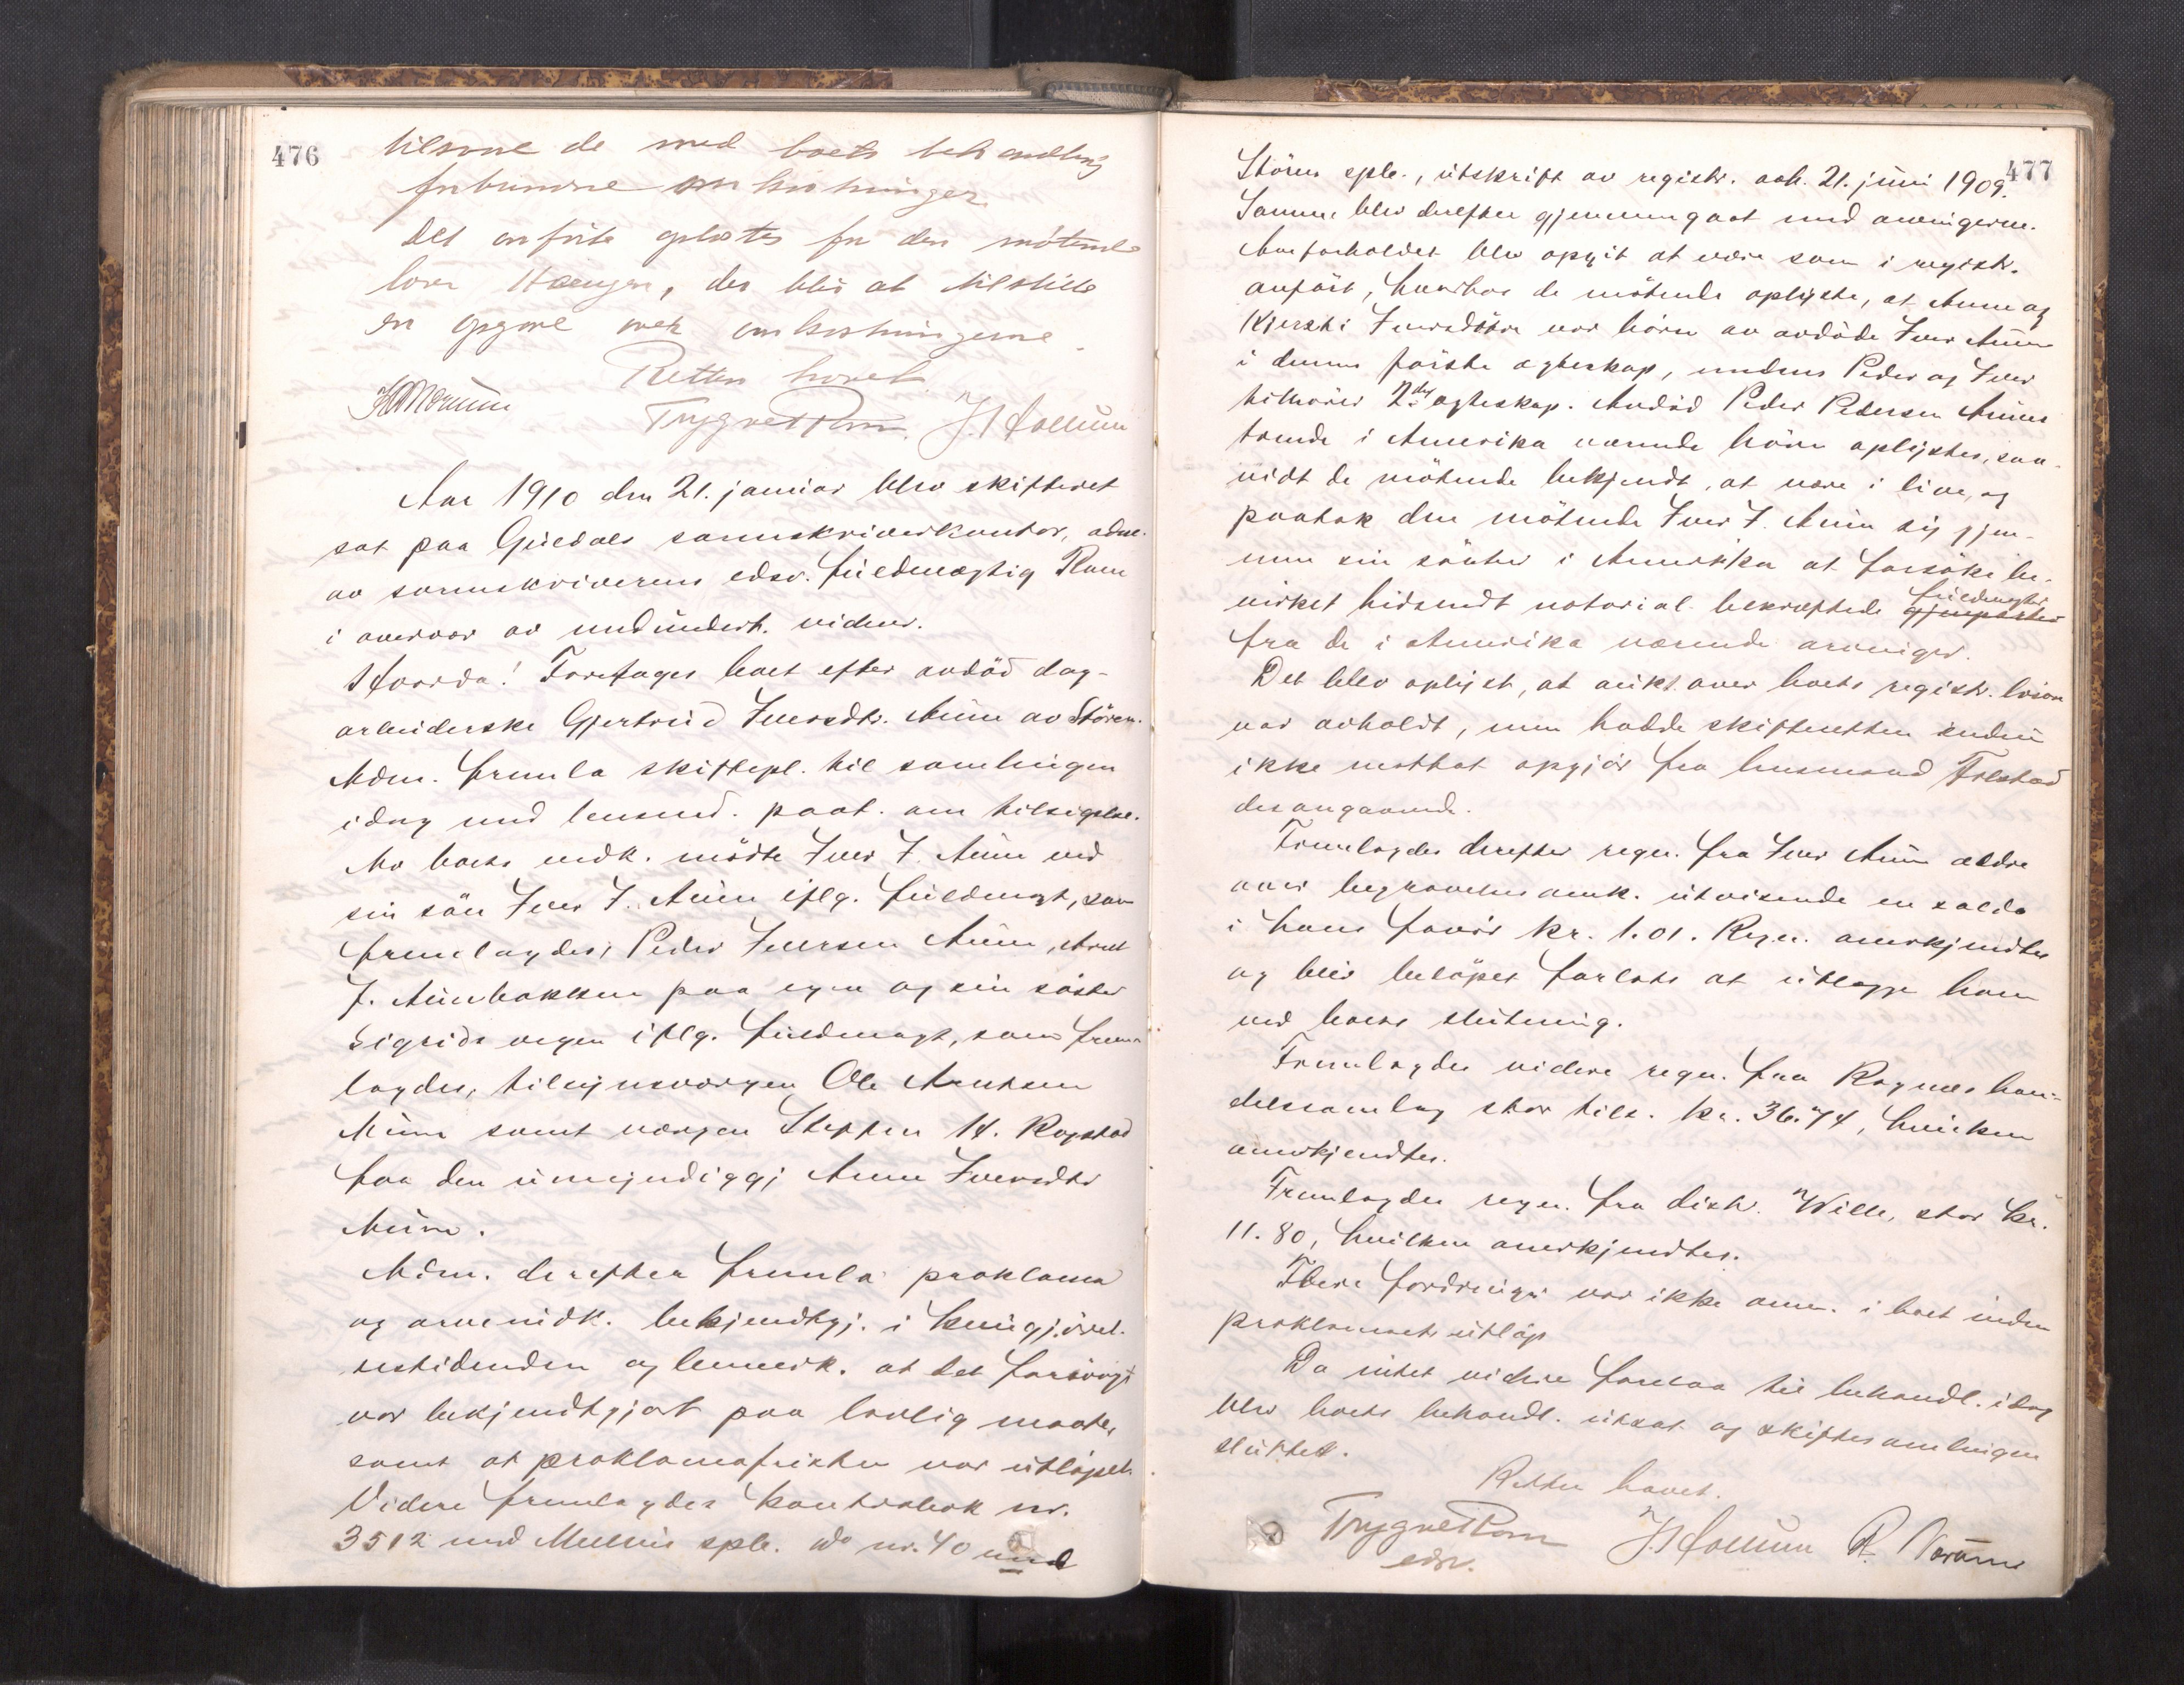 476
tilsvare de med boets behandling
forbundne omkostninger.
Det anførte oplæstes for den møtende
, der blir at tilstille
en opgave over omkostningerne.
Retten hævet.
Trygve Rom. J. Hollum
Aar 1910 den 21. januar blev skifteret
sat paa Guldals sorenskriverkontor, adm.
av sorenskriverens edsv. fuldmægtig Rom
i overvær av nedundert. vidner.
Hvorda! Foretages boet efter avdød dag-
arbeiderske Gjertrud Iversdtr. Aune av Støren.
Adm. fremla skiftepl. til samlingen
idag med lensmd. paat. om tilsigelse.
Av boets vedk. mødte Iver I. Aune ved
sin søn Iver I. Aune iflg. fuldmagt, som
fremlagdes, Peder Iversen Aune, Arnt
J. Aunebakken paa egne og sin søster
Sigrids vegne iflg. fuldmagt, som frem-
lagdes, tilsynsvergen Ole Arntsen
Aune samt vergen Steffen H. Rogstad
for den umyndiggj Anne Iversdtr
Aune.
Adm. derefter fremla proklama
og arvevidk. bekjendtgj. i kundgjørel-
sestidenden og bemerk. at det forøvrigt
var bekjendtgjort paa lovlig maate,
samt at proklamafristen var utløpet.
Videre fremlagdes kontrabok nr.
3512 med Melhus spb. do nr. 40 med
477
Støren spb., utskrift av registr. avh. 21. juni 1909.
Samme blev derefter gjennemgaat med arvingerne.
Arveforholdet blev opgit at være som i registr.
anført, hvorhos de møtende oplyste, at Anne og
Kjersti Iversdøtre var børn av avdøde Iver Aune
i dennes første egteskap, medens Peder og Iver
tilhører 2det egteskap. Avdød Peder Pedersen Aunes
trende i Amerika værende børn oplystes, saa-
vidt de møtende bekjendt, at være i live, og
paatok den møtende Iver I. Aune sig gjen-
nem sin søster i Amerika at forsøke be-
virket hidsendt notorial bekræftede fuldmagter
gjenparter
fra de i Amerika værende arvinger.
Det blev oplyst, at aukt. over boets registr. løsøre
var avholdt, men hadde skifteretten endnu
ikke mottat opgjør fra lensmand Folstad
desangaaende.
Fremlagdes derefter regn. fra Iver Aune ældre
over begravelsesomk. utvisende en saldo
i hans favør kr. 1.01. Regn. anerkjendtes
og blir beløpet forlots at utlægge ham
ved boets slutning.
Fremlagdes videre regn. fra Rognes han-
delssamlag stor tils. kr. 36.74, hvilken
anerkjendtes.
Fremlagdes regn. fra distr. Wille, stor kr.
11.80, hvilken anerkjendtes.
Flere fordringer var ikke anm. i boet inden
proklamaets utløp
Da intet videre forelaa til behandl. idag
blev boets behandl. utsat og skiftesamlingen
sluttet.
Retten hævet.
Trygve Rom
edsv.
J. Hollum